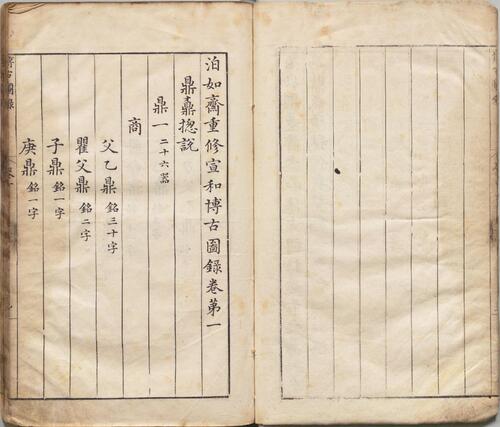 泊如齋重修宣和博古圖錄卷第一
鼎鼒捴說
鼎一 二十六器
商
父乙鼎 銘三十字
瞿父鼎 銘二字
子鼎 銘一字
庚鼎 銘一字
博古圖錄